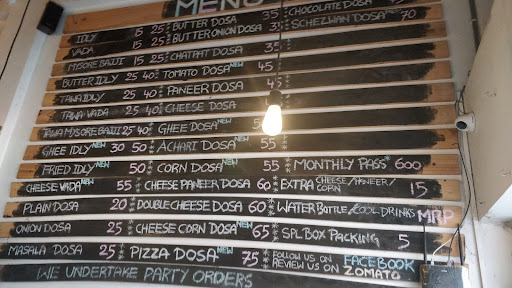 MENU
IDLY 15 25
VADA 15 25
MYSORE BAJJI 15 25
BUTTER IDLY 25 40
TAWA IDLY 25 40
TAWA VADA 25 40
TAWA MYSORE BAJJI 25 40
GHEE IDLY NEW 30 50
FRIED IDLY 50
CHEESE VADA NEW 55
PLAIN DOSA 20
ONION DOSA 25
MASALA DOSA 25
BUTTER DOSA 35
BUTTER ONION DOSA 35
CHATPAT DOSA 35
TOMATO DOSA NEW 45
PANEER DOSA 45
CHEESE DOSA
GHEE DOSA NEW
ACHARI DOSA NEW 55
CORN DOSA NEW 55
CHEESE PANEER DOSA 60
DOUBLE CHEESE DOSA 60
CHEESE CORN DOSA NEW 65
PIZZA DOSA NEW 75
CHOCOLATE DOSA
SCHEZWAN DOSA NEW 70
MONTHLY PASS* 600
EXTRA CHEESE/PANEER/CORN 15
WATER BOTTLE/COOL DRINKS MRP
SPL BOX PACKING 5
FOLLOW US ON FACEBOOK
REVIEW US ON ZOMATO
WE UNDERTAKE PARTY ORDERS